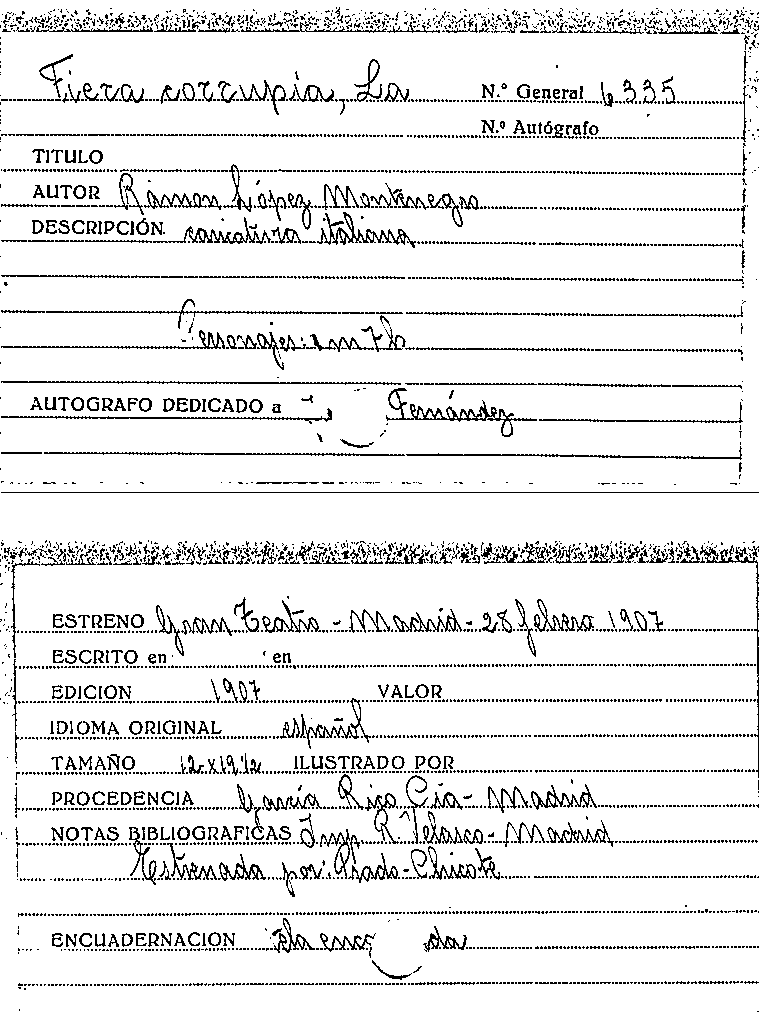 Fiera corrupia, La
N.º General 6335
N.º Autógrafo
TITULO
AUTOR Ramon López Montenegro
DESCRIPCIÓN caricatura italiana
Personajes: m 7 h
AUTOGRAFO DEDICADO a Fernández
ESTRENO Gran Teatro - Madrid - 28 febrero 1907
ESCRITO en en
EDICION 1907 VALOR
IDIOMA ORIGINAL español
TAMAÑO 12 x 19 1/2 ILUSTRADO POR
PROCEDENCIA García Rico Cía - Madrid
NOTAS BIBLIOGRAFICAS Imp R. Velasco - Madrid
Estrenada por: Prado-Chicote
ENCUADERNACION